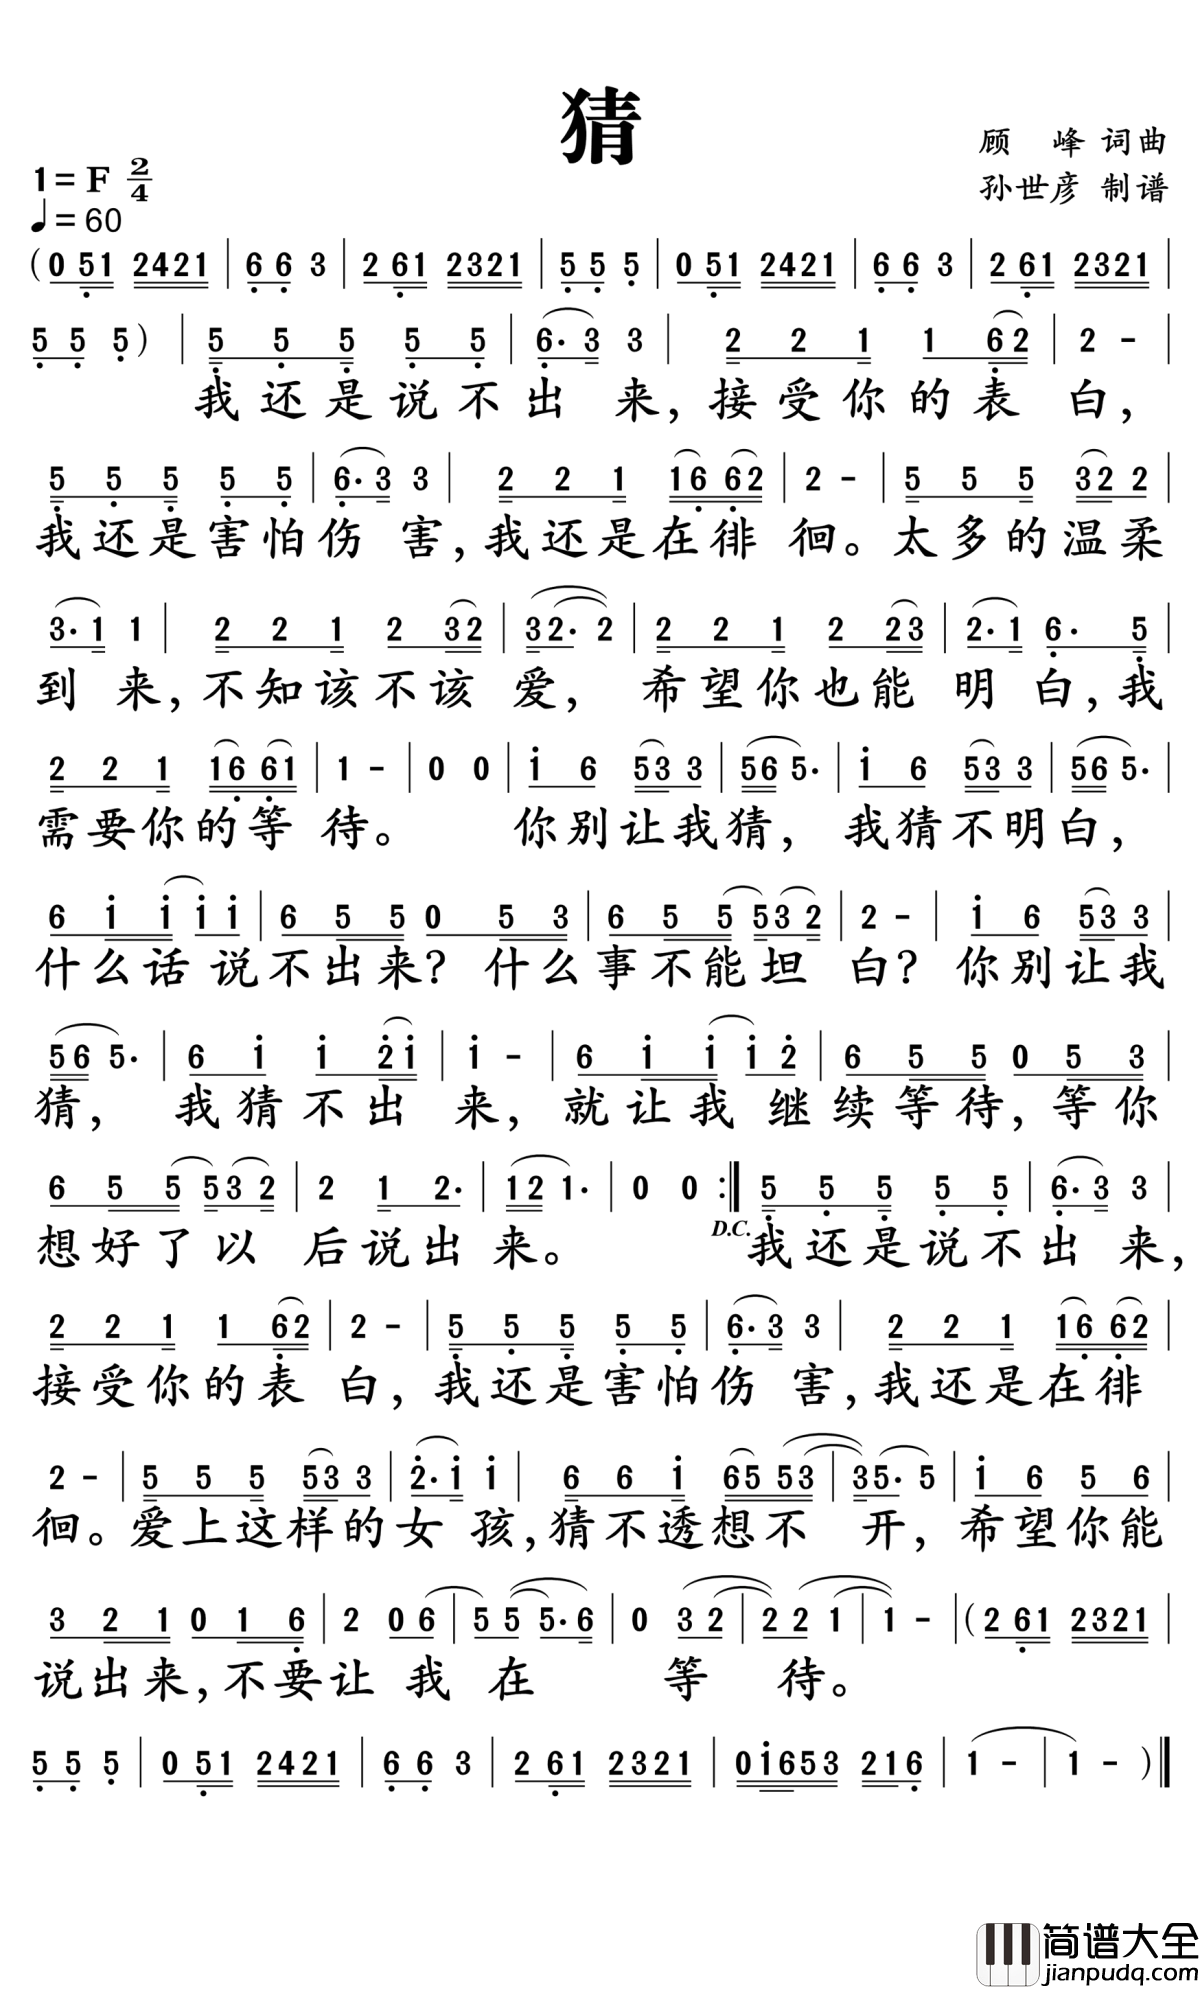 猜
顾 峰 词曲
1=F 2/4
孙世彦 制谱
♩=60
(0 51 2421 | 6 6 3 | 2 61 2321 | 5 5 5 | 0 51 2421 | 6 6 3 | 2 61 2321 |
5 5 5) | 5 5 5 5 5 | 6· 3 3 | 2 2 1 1 62 | 2 - |
我还是说不出 来,接受你的表 白,
5 5 5 5 5 | 6· 3 3 | 2 2 1 16 62 | 2 - | 5 5 5 32 2 |
我还是害怕伤 害,我还是在徘 徊。太多的温柔
3· 1 1 | 2 2 1 2 32 | 32· 2 | 2 2 1 2 23 | 2· 1 6· 5 |
到 来,不知该不该 爱, 希望你也能 明 白,我
2 2 1 16 61 | 1 - | 0 0 | i 6 53 3 | 56 5· | i 6 53 3 | 56 5· |
需要你的等 待。 你别让我猜, 我猜不明白,
6 i i i i | 6 5 5 0 5 3 | 6 5 5 53 2 | 2 - | i 6 53 3 |
什么话 说不出来? 什么事不能坦 白? 你别让我
56 5· | 6 i i 2i | i - | 6 i i i 2 | 6 5 5 0 5 3 |
猜, 我猜不出 来, 就让我 继续等待,等你
6 5 5 53 2 | 2 1 2· | 12 1· | 0 0 :‖ 5 5 5 5 5 | 6· 3 3 |
想好了以 后说出 来。 D.C. 我还是说不出 来,
2 2 1 1 62 | 2 - | 5 5 5 5 5 | 6· 3 3 | 2 2 1 16 62 |
接受你的表 白,我还是害怕伤 害,我还是在徘
2 - | 5 5 5 53 3 | 2· i i | 6 6 i 65 53 | 35· 5 | i 6 5 6 |
徊。爱上这样的女 孩,猜不透想不 开, 希望你能
3 2 1 0 1 6 | 2 0 6 | 5 5 5· 6 | 0 3 2 | 2 2 1 | 1 - | (2 61 2321 |
说出来,不要让 我 在 等 待。
5 5 5 | 0 51 2421 | 6 6 3 | 2 61 2321 | 0i653 216 | 1 - | 1 - )‖
简谱大全
jianpudq.com